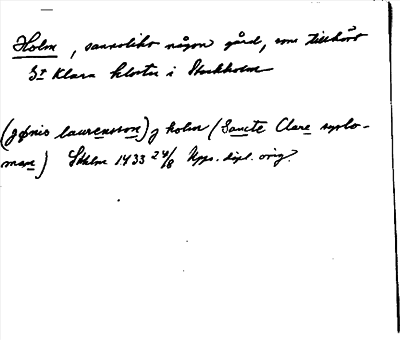 Holm, sannolikt någon gård, som tillhört
St Klara kloster i Stockholm
(jønis laurensson) j holm (Sancte Clare syslo-
man) Sthlm 1433 24/8 Upps. dipl. orig.